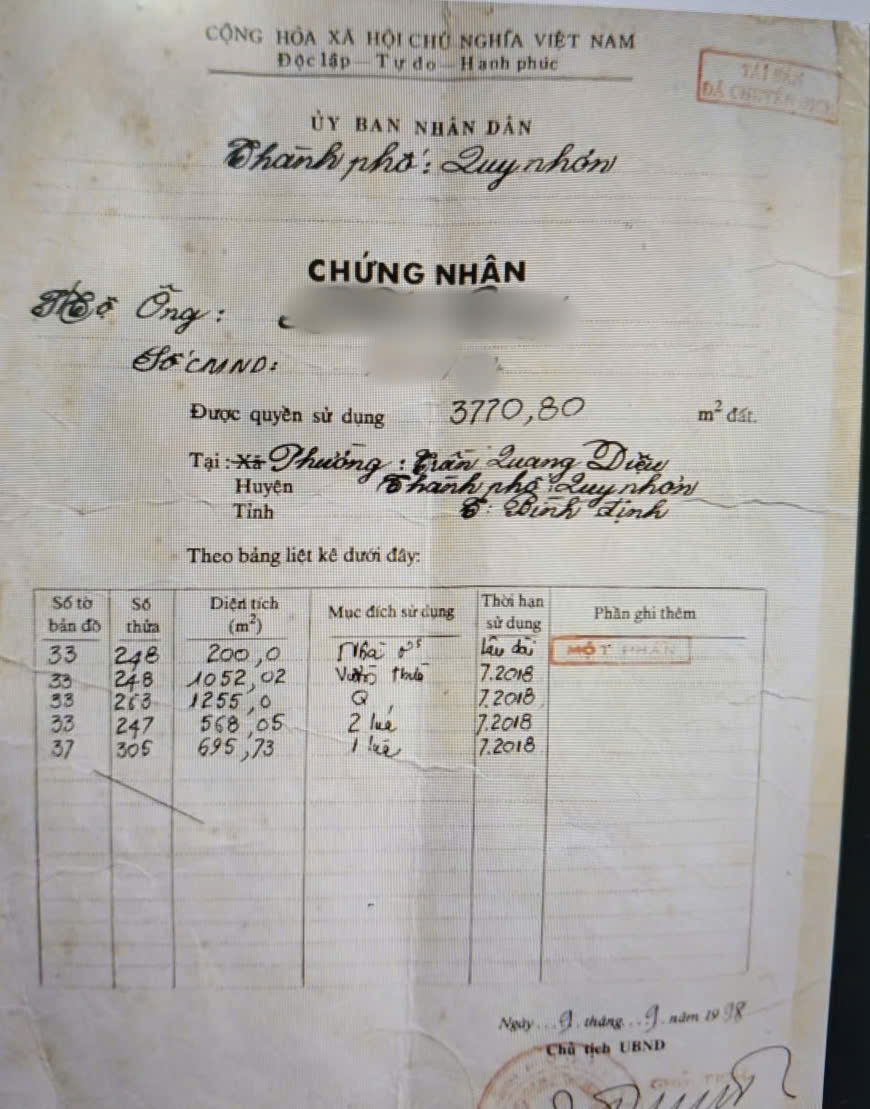 CỘNG HÒA XÃ HỘI CHỦ NGHĨA VIỆT NAM
Độc lập – Tự do – Hạnh phúc
ĐÃ CHUYỂN DỊCH
ỦY BAN NHÂN DÂN
Thành phố: Quy nhơn
CHỨNG NHẬN
Hộ Ông:
Số CMND:
Được quyền sử dụng 3770,80 m² đất.
Tại: Xã Phường: Trần Quang Diệu
Huyện Thành phố: Quy nhơn
Tỉnh T: Bình định
Theo bảng liệt kê dưới đây:
Số tờ bản đồ Số thửa Diện tích (m²) Mục đích sử dụng Thời hạn sử dụng Phần ghi thêm
33 248 200,0 Nhà ở lâu dài MỘT PHẦN
33 248 1052,02 Vườn thừa 7.2018
33 263 1255,0 Q 7.2018
33 247 568,05 2 lúa 7.2018
37 305 695,73 1 lúa 7.2018
Ngày...9.tháng...9.năm 1998
Chủ tịch UBND